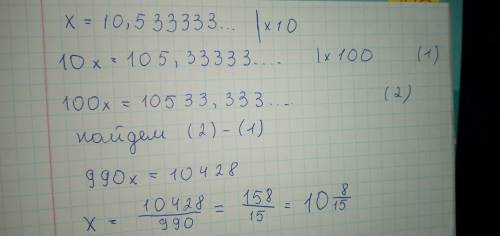 x = 10,533333... | x 10
10x = 105,33333.... | x 100 (1)
100x = 10533,333... (2)
найдем (2) - (1)
990x = 10428
x = 10428/990 = 158/15 = 10 8/15